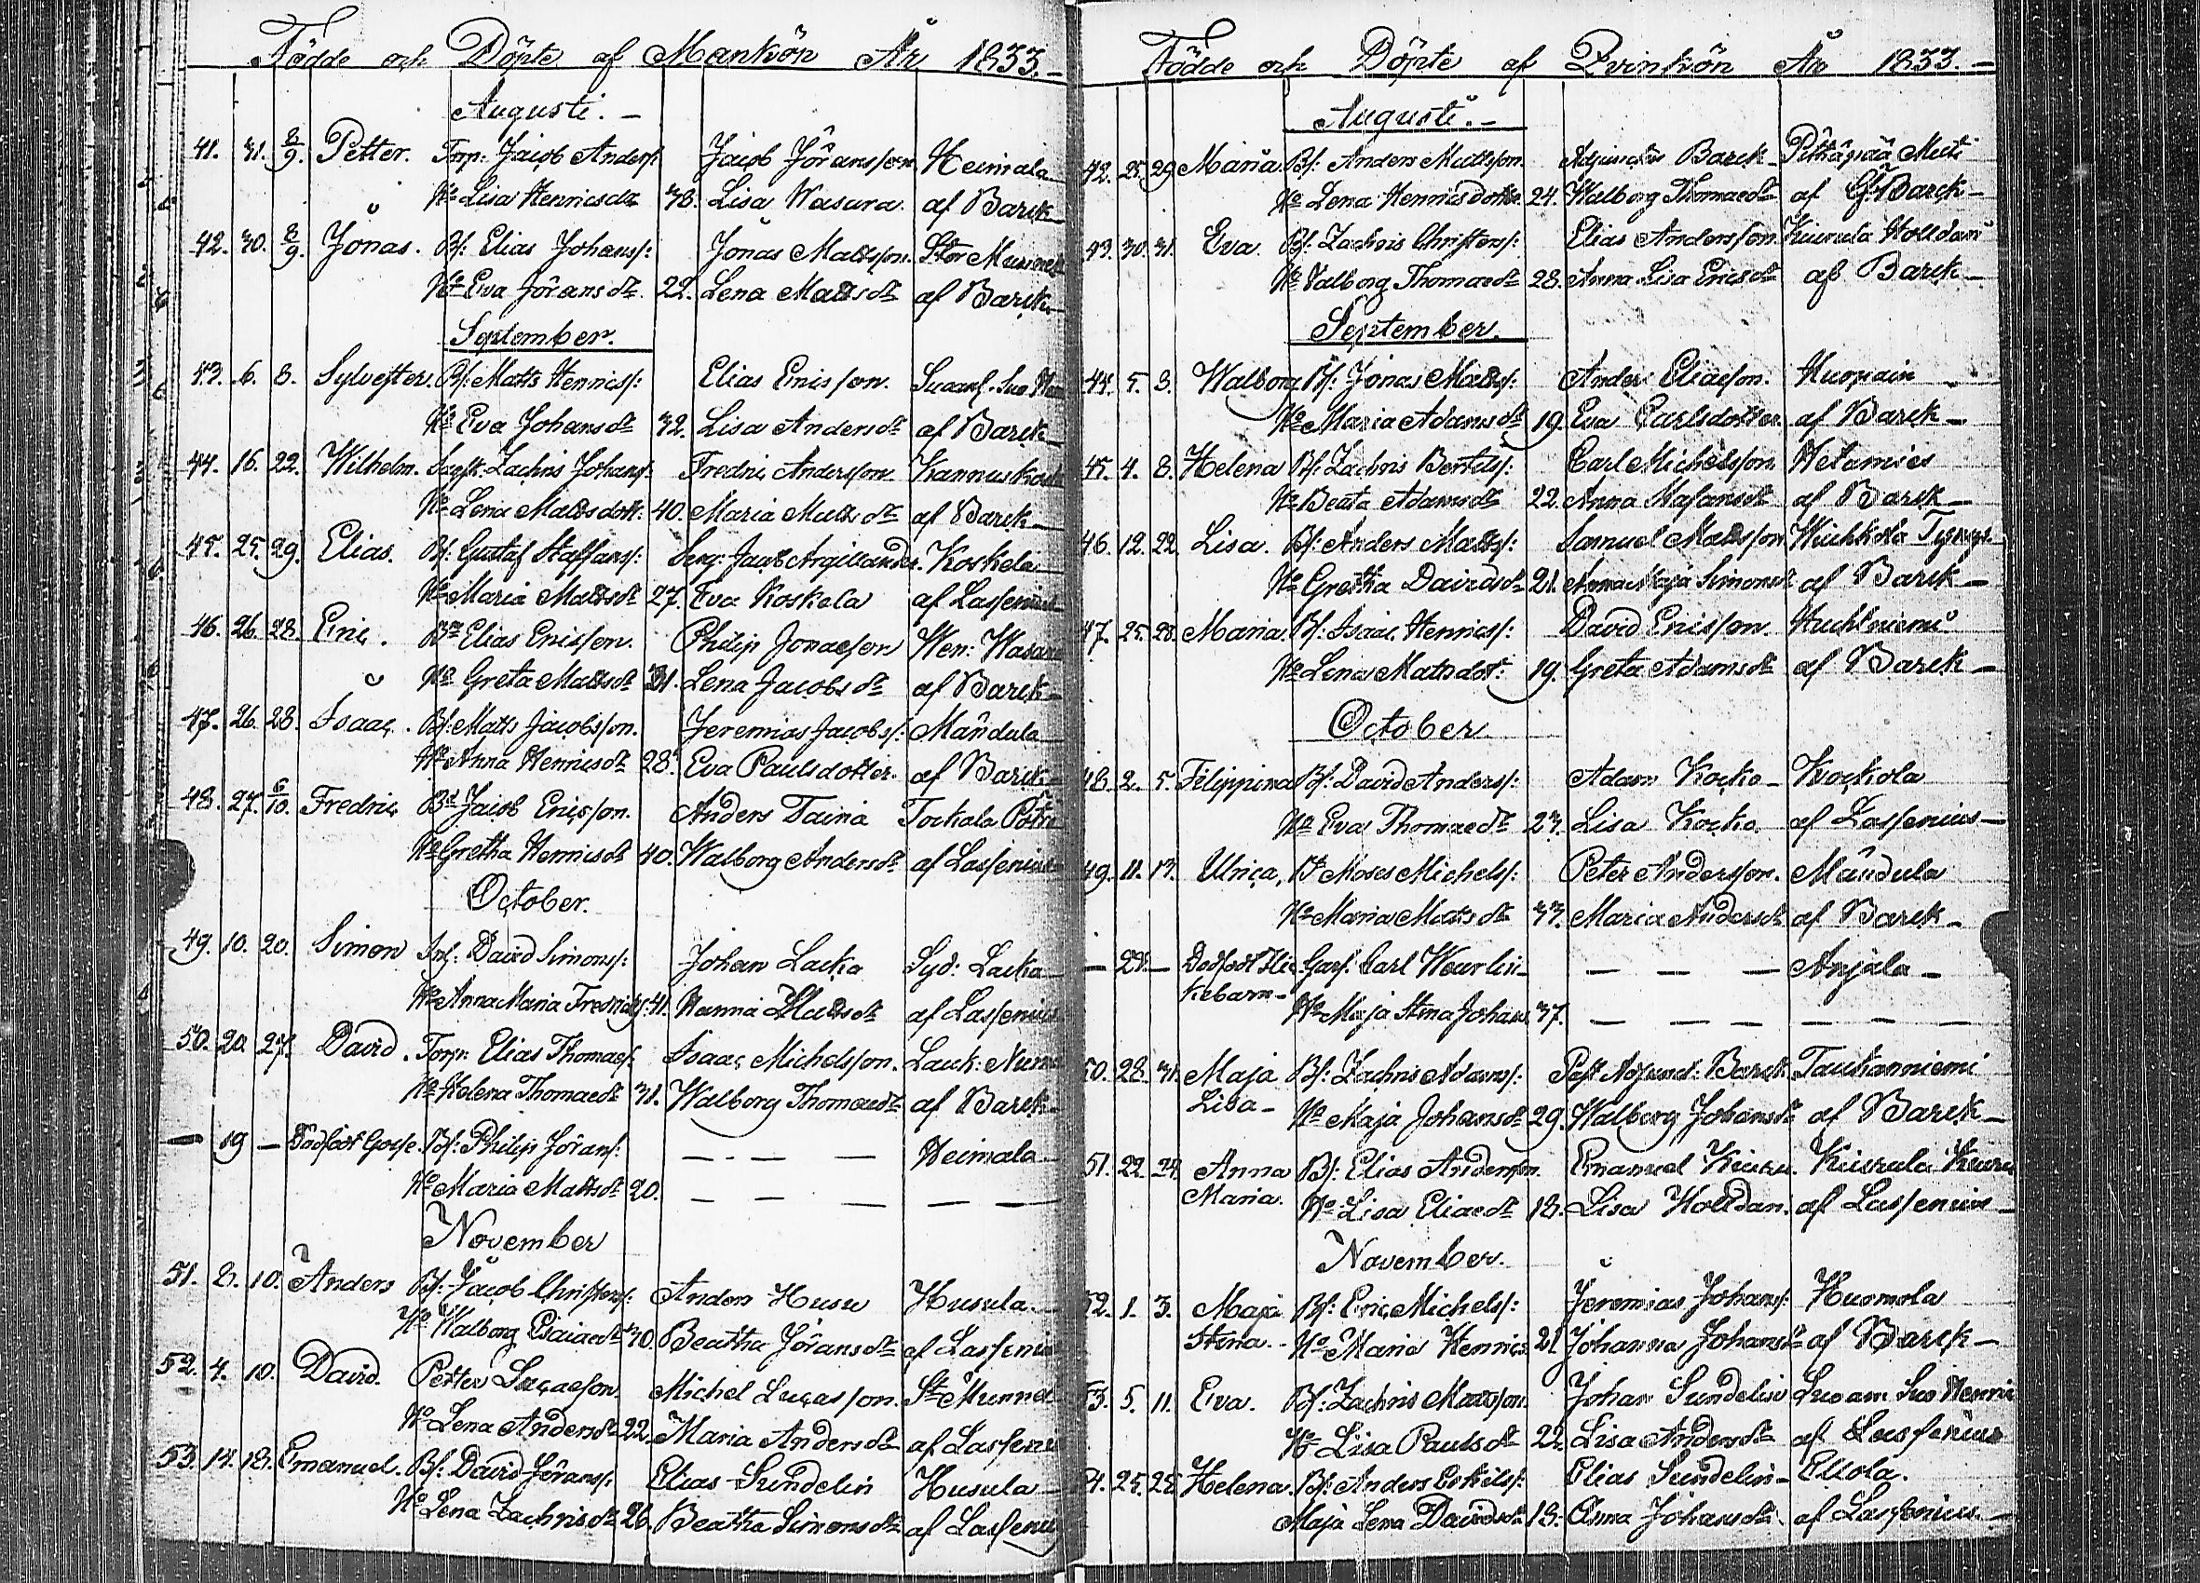 Födde och Döpte af Mankön År 1833.
Augusti.
41. 31. 8/9. Petter. Torp: Jacob Anders: Jacob Jöransson Heimala
Ho Lisa Henricsdr 38. Lisa Wasara. af Barck
42. 30. 8/9. Jonas. Bf: Elias Johans: Jonas Mattsson. Stor
Ho Eva Jöransdr 22. Lena Mattsdr af Barck
September.
43. 6. 8. Sylvester. Bf: Matts Henrics: Elias Ericsson.
Ho Eva Johansdr 32. Lisa Andersdr af Barck
44. 16. 22. Wilhelm. Zachris Johans: Fredric Andersson
Ho Lena Mattsdott: 40. Maria Mattsdr af Barck
45. 25. 29. Elias. Bf: Gustaf Staffans: Serg: Jacob Argillander. Koskela
Ho Maria Mattsdr 27. Eva Koskela af Lassenius
46. 26. 28. Eric. Elias Ericsson. Philip Jonasson
Ho Greta Mattsdr 31. Lena Jacobsdr af Barck
47. 26. 28. Isaac. Bf: Matts Jacobsson. Jeremias Jacobs: Mändula
Ho Anna Henricsdr 28. Eva Paulsdotter. af Barck
48. 27. 6/10. Fredric Jacob Ericsson. Anders Taina
Ho Gretha Henricsdr 40. Walborg Andersdr af Lassenius
October.
49. 10. 20. Simon Inh: David Simons: Johan Lacka Syd: Lacka
Ho Anna Maria Fredrics: 41. Hanna Mattsdr af Lassenius
50. 20. 27. David. Torp: Elias Thomas: Isaac Michelsson. Lauk:
Ho Helena Thomaedr 31. Walborg Thomaedr af Barck
— 19 — Dödfödt Bf: Philip Jörans: — — — Heimala
Ho Maria Mattsdr 20. — — — —
November
51. 8. 10. Anders Bf: Jacob Christers: Anders Husu Husula
Ho Walborg Esaiaedr 30. Beatha Jöransdr af Lassenius
52. 4. 10. David. Petter Lucasson. Michel Lucasson. St:
Ho Lena Andersdr 22. Maria Andersdr af Lassenius
53. 18. Emanuel. Bf: David Jörans: Elias Sundelin Husula
Ho Lena Zachrisdr 26. Beatha Simonsdr af Lassenius
Födde och Döpte af Qvinkön År 1833.
Augusti.
42. 25. 29. Maria Bf: Anders Mattsson. Adjunctus Barck
Ho Lena Henricsdotter 24. Walborg Thomaedr af Barck
43. 30. 31. Eva. Bf: Zachris Christers: Elias Andersson.
Ho Valborg Thomaedr 28. Anna Lisa Ericsdr af Barck
September.
44. 5. 8. Walborg Bf: Jonas Matts: Anders Eliasson.
Ho Maria Adamsdr 19. Eva Carlsdotter. af Barck
45. 4. 8. Helena Bf: Zachris Bertils: Carl Michelsson
Ho Beata Adamsdr 22. Anna af Barck
46. 12. 22. Lisa. Bf: Anders Matts: Samuel Mattsson
Ho Gretha Davidsdr 21. Anna Maja Simonsdr af Barck
47. 25. 28. Maria. Bf: Isaac Henrics: David Ericsson. Huchtniemi
Ho Lena Mattsdot: 19. Greta Adamsdr af Barck
October.
48. 2. 5. Filippina Bf: David Anders: Adam Kocko
Ho Eva Thomaedr 23. Lisa Kocko. af Lassenius
49. 11. 13. Ulrica. Moses Michels: Peter Andersson. Mändula
Ho Maria Mattsdr 33. Maria Andersdr af Barck
— Dödfödt Carl — — — Anjala
Ho Maja Stina Johans: 37. — — — — — —
50. 28. 31. Maja Bf: Zachris Adams: Barck Taukanniemi
Lisa Ho Maja Johansdr 29. Walborg Johansdr af Barck
51. 22. Anna Bf: Elias Andersson. Emanuel
Maria. Ho Lisa Eliaedr 18. Lisa Holldan. af Lassenius
November.
52. 1. 3. Maja Bf: Eric Michels: Jeremias Johans:
Stina. Ho Maria Henrics 21 Johanna Johansdr af Barck
53. 5. 11. Eva. Bf: Zachris Mattsson. Johan Sundelin
Ho Lisa Paulsdr 22. Lisa Andersdr af Lassenius
54. 25. Helena. Bf: Anders Eskils: Elias Sundelin Ellola.
Maja Lena Davidsdr 18. Anna Johansdr. af Lassenius.